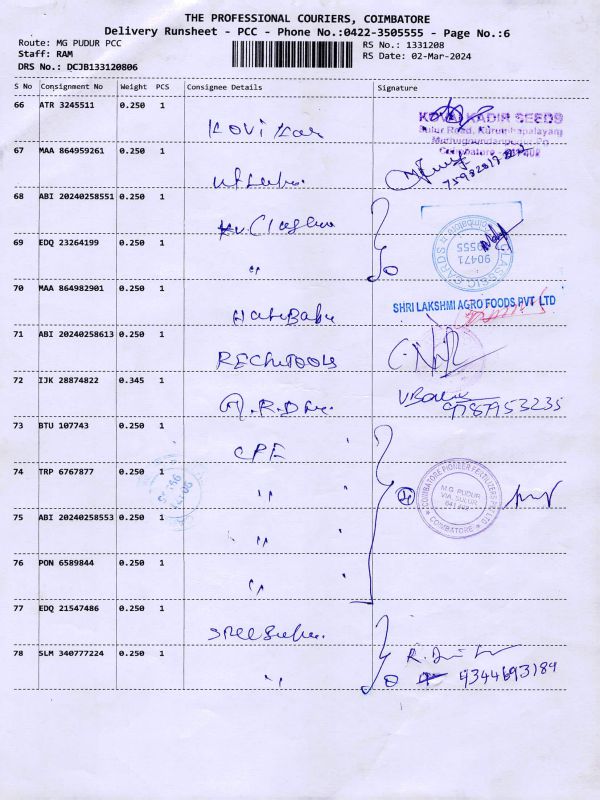 THE PROFESSIONAL COURIERS, COIMBATORE
Delivery Runsheet - PCC - Phone No.:0422-3505555 - Page No.:6
Route: MG PUDUR PCC
RS No.: 1331208
Staff: RAM
RS Date: 02-Mar-2024
DRS No.: DCJB133120806
S No Consignment No Weight PCS Consignee Details Signature
66 ATR 3245511 0.250 1
KOVAI KADIR SEEDS
Sulur Road, Kurumbapalayam
67 MAA 864959261 0.250 1
68 ABI 20240258551 0.250 1
69 EDQ 23264199 0.250 1 "
CLASSIC CARDS
Coimbatore
90471
70 MAA 864982901 0.250 1
SHRI LAKSHMI AGRO FOODS PVT LTD
71 ABI 20240258613 0.250 1
72 IJK 28874822 0.345 1
9787953235
73 BTU 107743 0.250 1 CPE
74 TRP 6767877 0.250 1 "
COIMBATORE PIONEER FERTILIZERS
M.G. PUDUR
VIA. SULUR
COIMBATORE
75 ABI 20240258553 0.250 1 "
76 PON 6589844 0.250 1 "
77 EDQ 21547486 0.250 1
78 SLM 340777224 0.250 1 "
9344693184